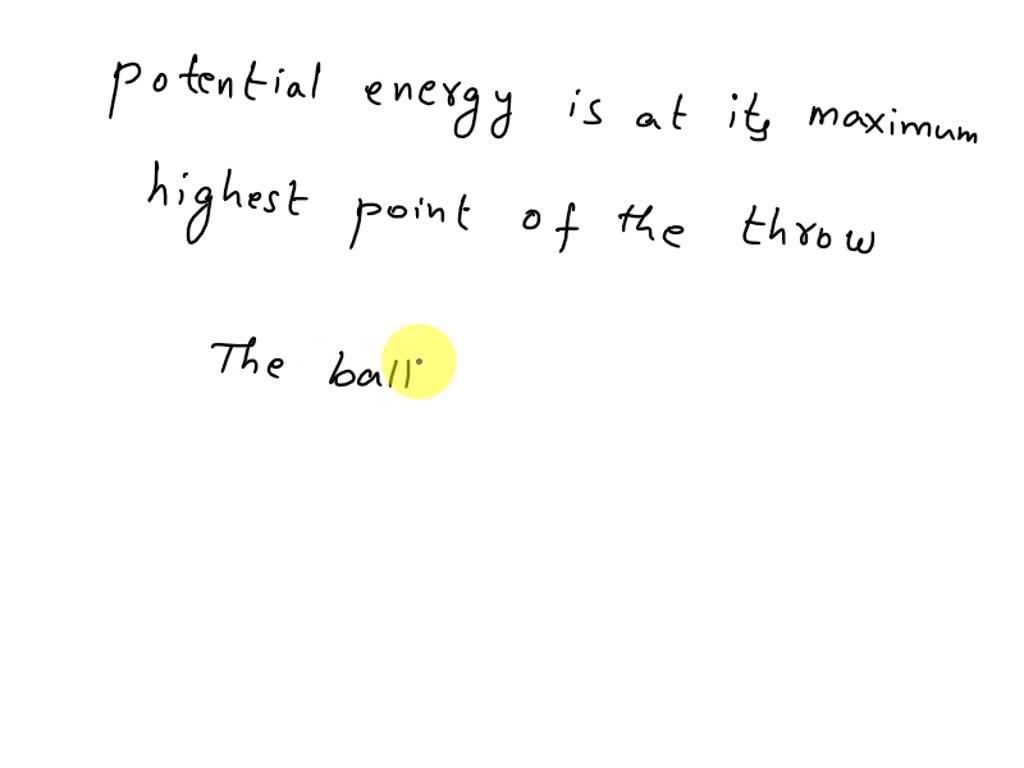 potential energy is at its maximum
highest point of the throw
The ball